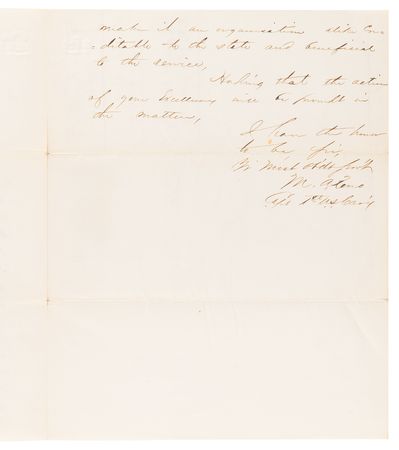 make it an organization alike cre
=ditable to the state and beneficial
to the service,
Hoping that the action
of your Excellency will be prompt in
the matter,
I have the honor
to be Sir,
Very Resp Obdt Servt
M.
Capt 1st Cav